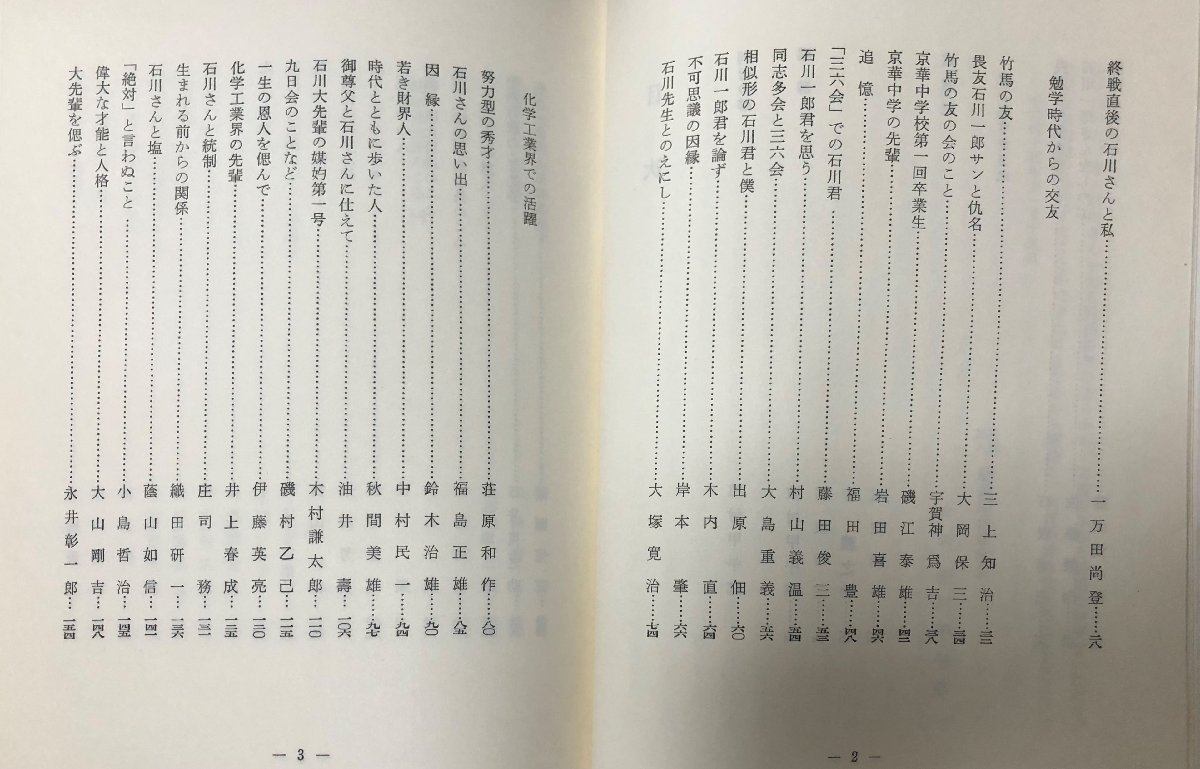 終戦直後の石川さんと私……一万田尚登……二八
勉学時代からの交友
竹馬の友……三上知治……三二
畏友石川一郎サンと仇名……大岡保三……三四
竹馬の友の会のこと……宇賀神爲吉……三八
京華中学校第一回卒業生……磯江泰雄……四二
京華中学の先輩……岩田喜雄……四六
追憶……福田豊……四八
「三六会」での石川君……藤田俊三……五三
石川一郎君を思う……村山義温……五四
同志多会と三六会……大島重義……五六
相似形の石川君と僕……出原佃……六〇
石川一郎君を論ず……木内直……六四
不可思議の因縁……岸本肇……六六
石川先生とのえにし……大塚寛治……七四
— 2 —
化学工業界での活躍
努力型の秀才……荘原和作……八〇
石川さんの思い出……福島正雄……八五
因縁……鈴木治雄……九〇
若き財界人……中村民一……九四
時代とともに歩いた人……秋間美雄……九七
御尊父と石川さんに仕えて……油井壽……一〇六
石川大先輩の媒妁第一号……木村謙太郎……一一〇
九日会のことなど……磯村乙己……一一五
一生の恩人を偲んで……伊藤英亮……一二〇
化学工業界の先輩……井上春成……一二五
石川さんと統制……庄司務……一三一
生まれる前からの関係……織田研一……一三六
石川さんと塩……蔭山如信……一四一
「絶対」と言わぬこと……小島哲治……一四五
偉大な才能と人格……大山剛吉……一四八
大先輩を偲ぶ……永井彰一郎……一五四
— 3 —